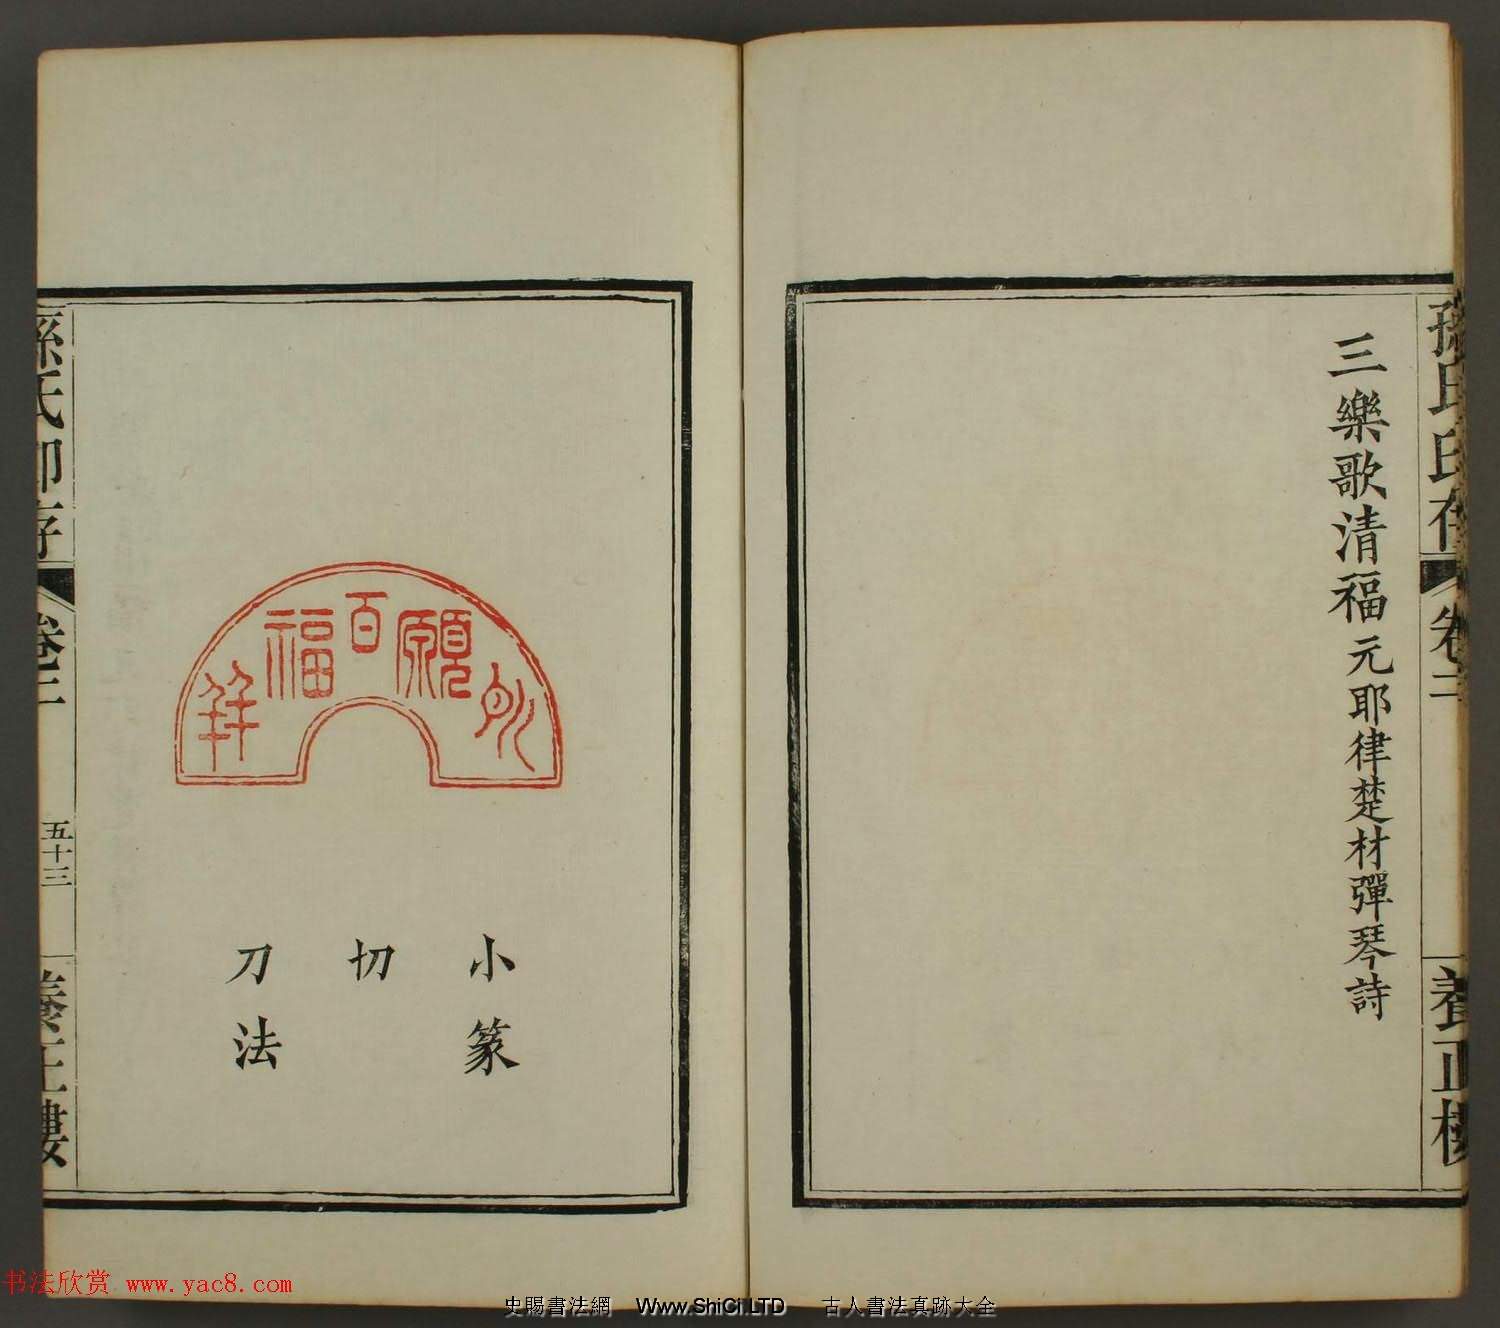 三樂歌清福元耶律楚材彈琴詩
孫氏印存
卷二
養正樓
願百福
小篆
切
刀法
孫氏印存
卷二
五十三
養正樓
书法欣赏 www.yac8.com
史賜書法網 Www.ShiCi.LTD 古人書法真跡大全